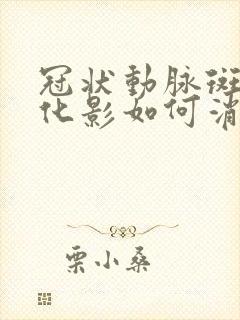 冠状動脉斑
化影如何消
栗小桑